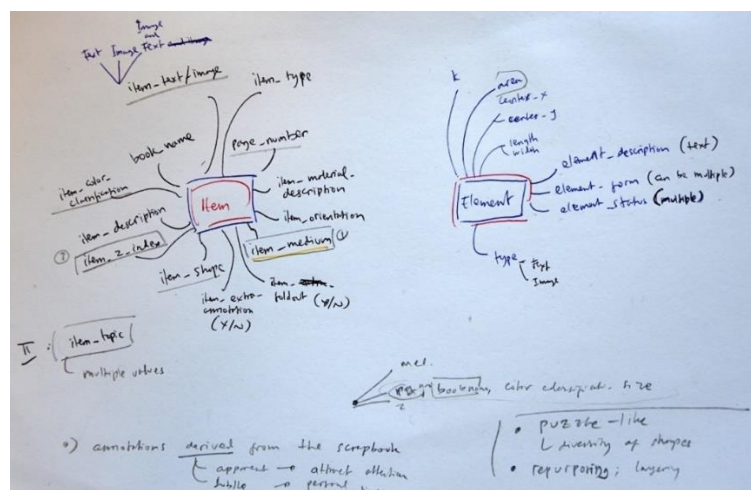 Image
and
Text Image Text and image
item_text/image
item_type
book_name
page_number
item_color_
classification
item_material_
description
item_description
Item
item_orientation
item_z_index
item_medium
item_shape
item_extra_
annotation
(Y/N)
item_extra_
foldout (Y/N)
II :
item_topic
multiple values
k
area
center_x
center_y
length
width
element_description (text)
Element
element_form (can be multiple)
element_status (multiple)
type
Text
Image
color classificat. size
•) annotations derived from the scrapbook
apparent → attract attention
subtle → personal
• puzzle-like
diversity of shapes
• repurposing; layering